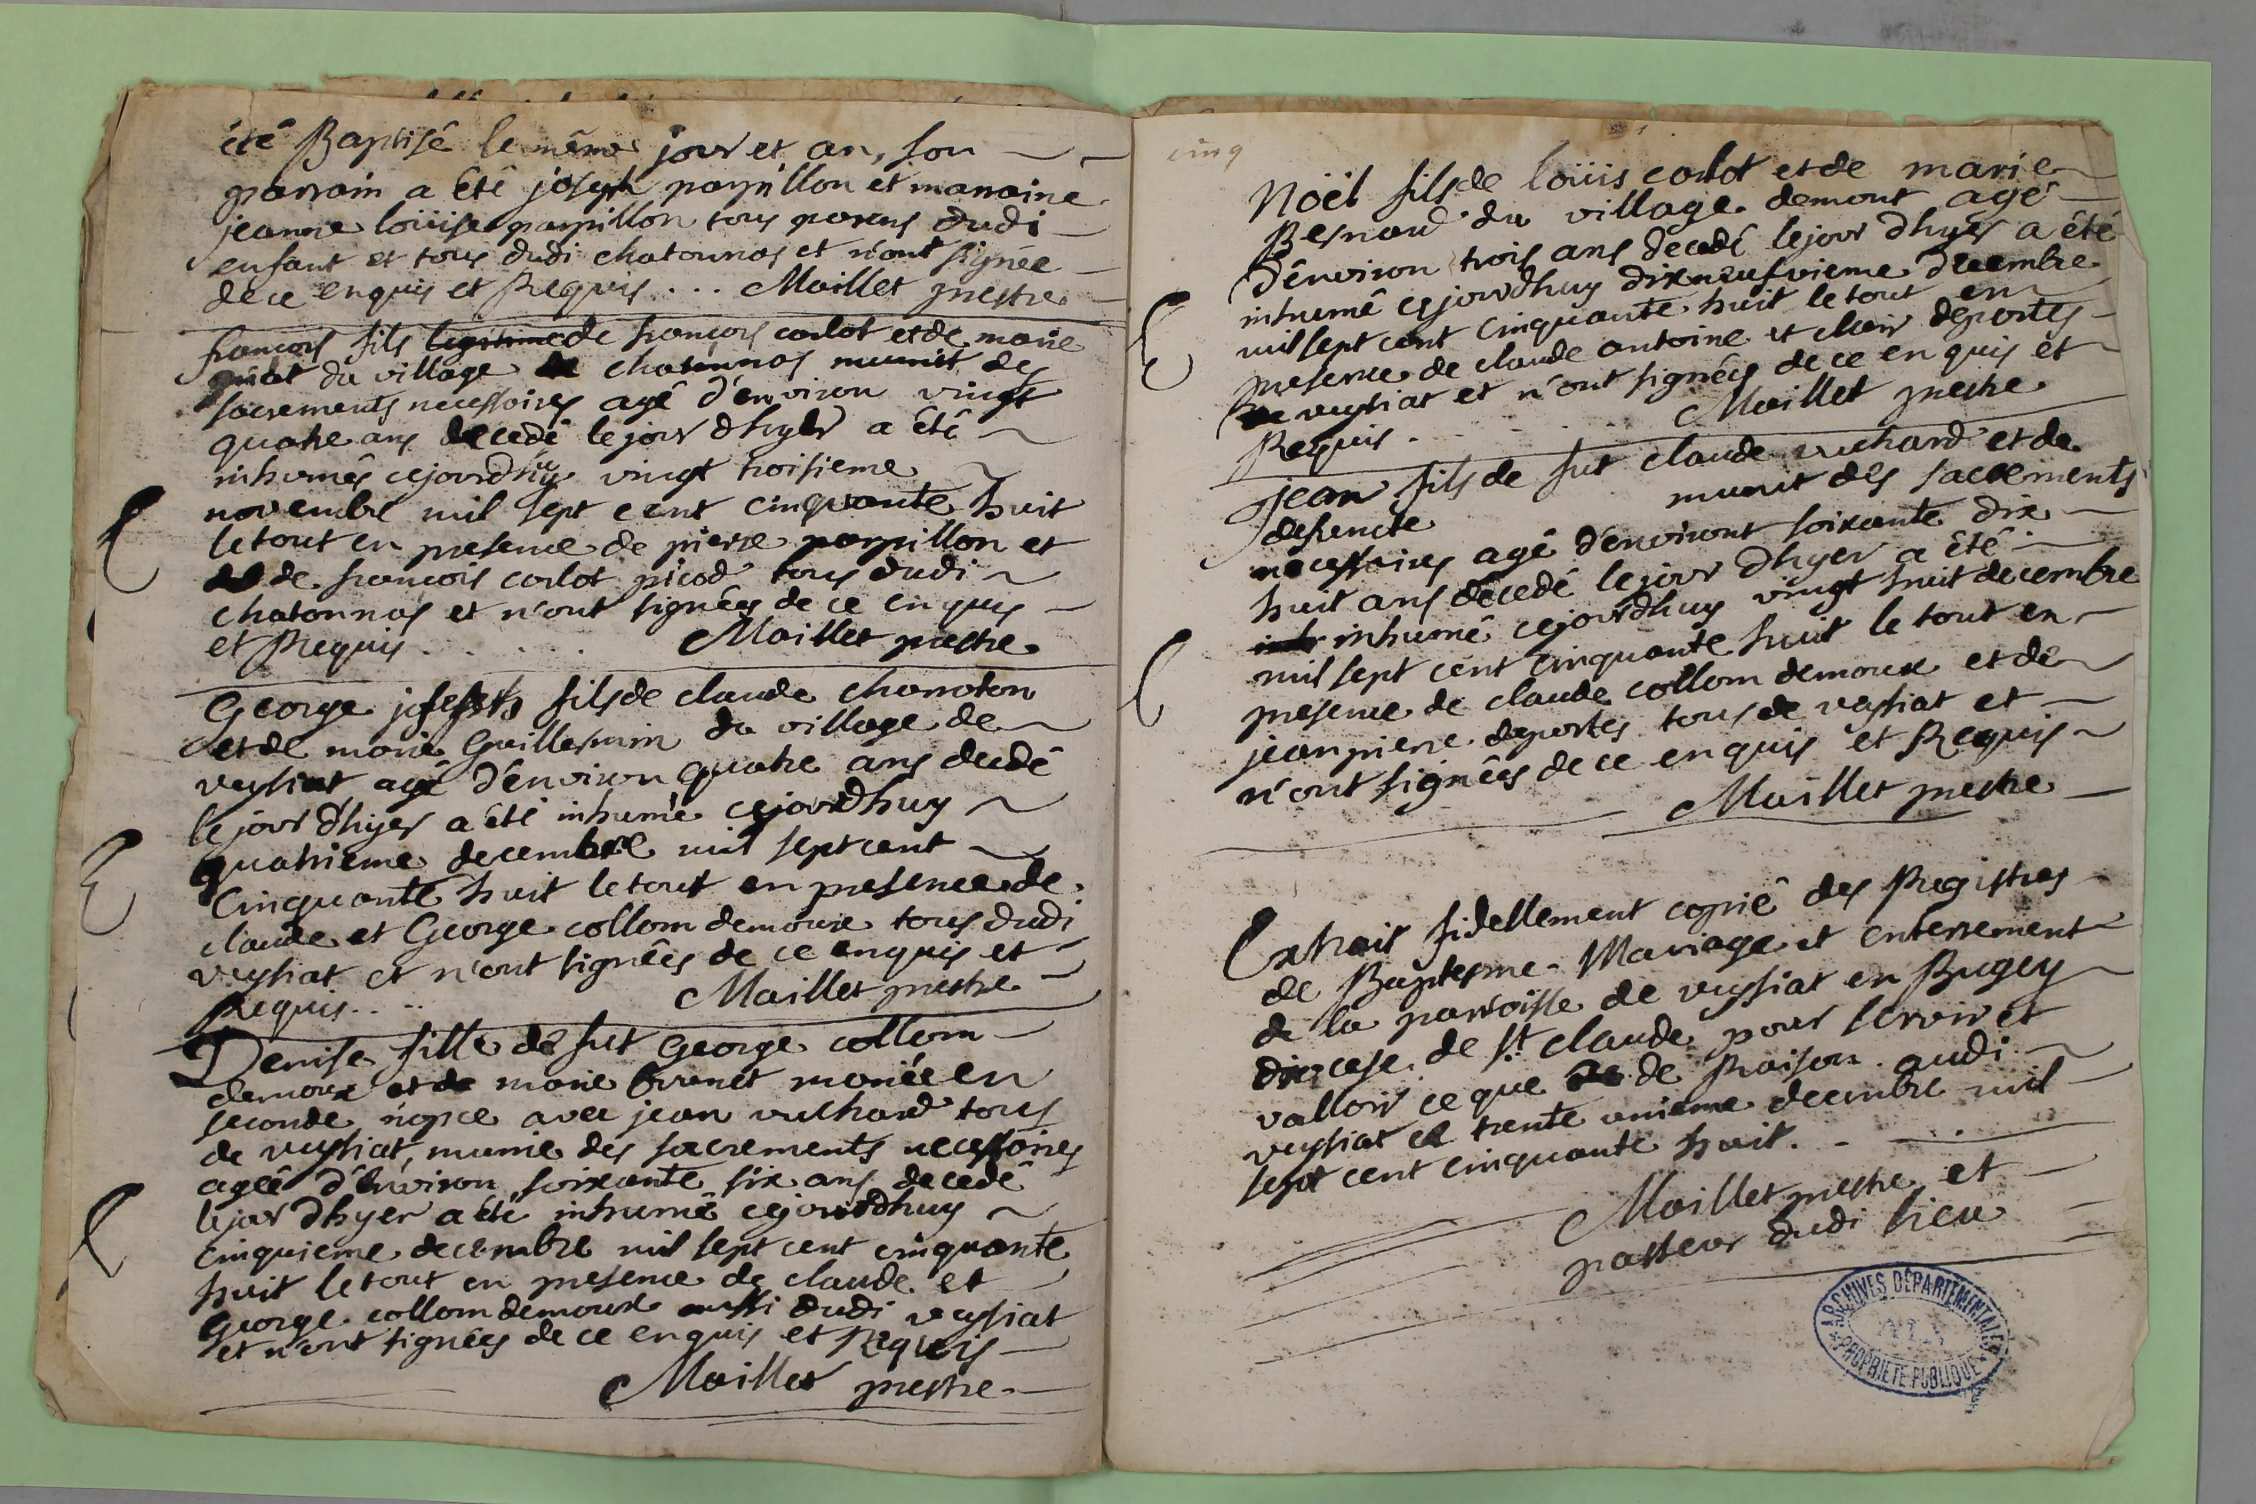 été Baptisé le même jour et an, son
parrain a été joseph parpillon et marraine
jeanne loüise parpillon tous parens dudi
enfant et tous dudi chatonnas et n'ont signée
de ce enquis et Requis... Maillet prestre
françois fils legitime de françois carlot et de marie
du village de chatonnas munit des
sacrements necessaires agé d'environ vingt
quatre ans decedé le jour dhyer a été
inhumés cejourdhuy vingt troisieme
novembre mil sept cent cinquante huit
le tout en presence de pierre parpillon et
de françois carlot picod tous dudi
chatonnas et n'ont signées de ce enquis
et Requis..... Maillet prestre
George joseph fils de claude charroton
et de marie Guillermin du village de
veyssiat agé d'environ quatre ans decedé
le jour dhyer a été inhumé cejourdhuy
quatrieme decembre mil sept cent
Cinquante huit le tout en presence de
claude et George collom demoux tous dudi
veyssiat et n'ont signées de ce enquis et
Requis.... Maillet prestre
Denise fille de fut George collom
demoux et de marie brunet mariée en
seconde nopce avec jean vuchard tous
de veyssiat, munie des sacrements necessaires
agée d'environ soixante six ans decedé
le jour dhyer a été inhumé cejourdhuy
cinquieme decembre mil sept cent cinquante
huit le tout en presence de claude et
George collom demoux aussi dudi veyssiat
et n'ont signées de ce enquis et Requis
Maillet prestre
cinq
Nöèl fils de loüis carlot et de marie
Besnard du village demont agé
d'environ trois ans decedé le jour dhyer a été
inhumé cejourdhuy dixneufvieme decembre
mil sept cent cinquante huit le tout en
presence de claude antoine et clair deportes
de veyssiat et n'ont signées de ce en quis et
Requis..... Maillet prestre
jean fils de fut claude vuchard et de
defuncte munit des sacrements
necessaires agé d'environt soixante dix
huit ans decedé le jour dhyer a été
inhumé cejourdhuy vingt huit decembre
mil sept cent cinquante huit le tout en
presence de claude collom demoux et de
jean pierre deportes tous de veyssiat et
n'ont signées de ce en quis et Requis
Maillet prestre
Extrait fidellement copié des Registres
de Baptesme. Mariage et enterrement
de la parroisse de veyssiat en Bugey
diocese de St. claude pour servir et
valloir ce que de Raison audi
veyssiat ce trente unieme decembre mil
sept cent cinquante huit.
Maillet prestre et
pasteur dudi lieu
ARCHIVES DÉPARTEMENTALES
AIN
PROPRIÉTÉ PUBLIQUE